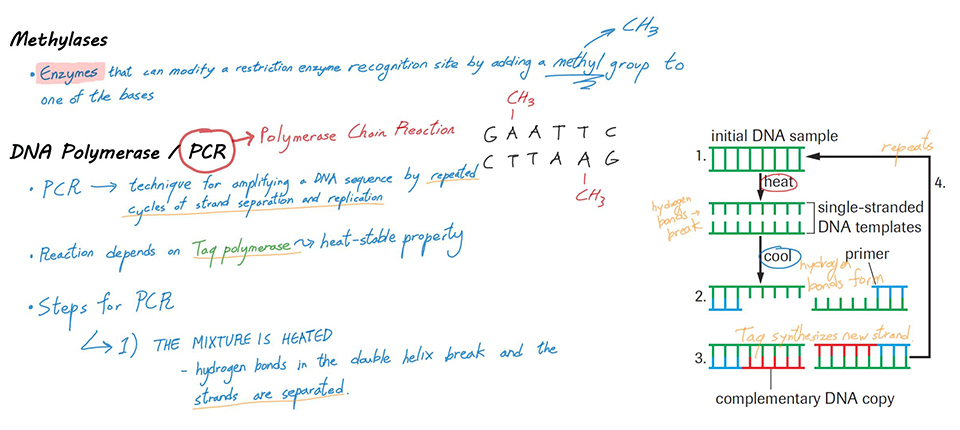 Methylases
CH3
• Enzymes that can modify a restriction enzyme recognition site by adding a methyl group to
one of the bases
DNA Polymerase / PCR → Polymerase Chain Reaction
CH3
G A A T T C
C T T A A G
CH3
• PCR → technique for amplifying a DNA sequence by repeated
cycles of strand separation and replication
• Reaction depends on Taq polymerase ⇝ heat-stable property
• Steps for PCR
↳ 1) THE MIXTURE IS HEATED
- hydrogen bonds in the double helix break and the
strands are separated.
initial DNA sample
1.
repeats
4.
heat
hydrogen
bonds →
break
single-stranded
DNA templates
cool
primer
hydrogen
bonds form
2.
Taq synthesizes new strand.
3.
complementary DNA copy